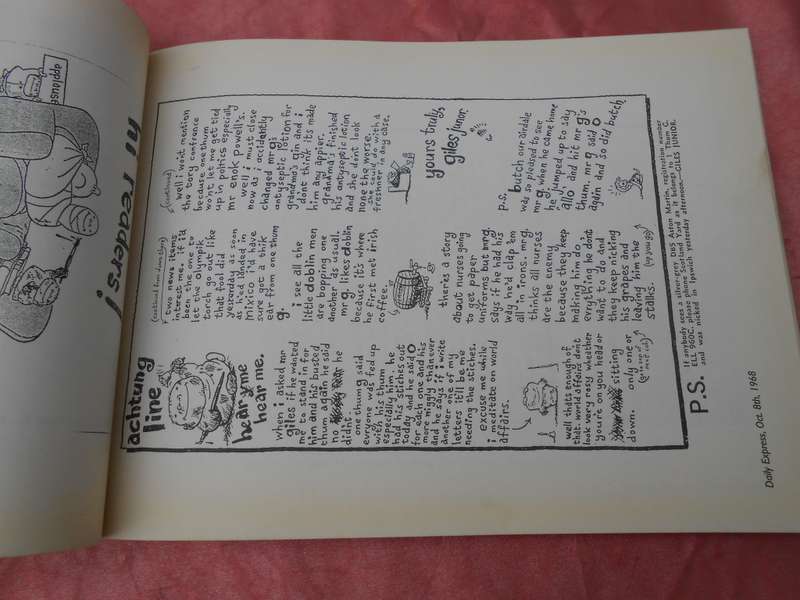 applause
hi readers!
achtung
line
hear me
hear me.
when i asked mr
giles if he wanted
me to stand in for
him and his busted
thum again he said
no he
didnt.
one thumg said
evryone was fed up
with his thum
especially him. he
had his stiches out
today and he said O
for each one and his
more miggly whanever
and he says if i write
another one of my
letters it'll be me
needing the stiches.
excuse me while
i meditate on world
affairs.
well thats enough of
that. world affairs dont
look very rosy whether
youre on you head or
sitting
down. only one or
two news items
interest me. if i'd
been the one to
let the olympik
torch go out like
that fool did
yesterday as soon
as he landed in
mixico i'd have
sure got a thik
ear from one thum
g.
i see all the
little doblin men
are bopping one
another as usual.
mr g. likes doblin
because it's where
he first met irish
coffee.
theres a story
about nurses going
to get paper
uniforms but mr g.
says if he had his
way he'd clap 'em
all in irons. mr g.
thinks all nurses
are the enemy
because they keep
making him do
evrything he dont
want to do and
they keep nicking
his grapes and
leaving him the
stalks.
(continued)
well i wont mention
the tory confrence
because one thum
won't let me get tied
up in politics especially
mr enok powell's.
well i must close
now as i accidently
changed mr g's
antyseptic lotion for
grandma's gin and i
dont think its made
him any appier.
grandma's finished
his antyseptic lotion
and she dont look
none the worse.
she could do with a
freshnner in any case.
yours truly,
giles junior.
p.s. butch our airdale
was so pleased to see
mr g. when he came home
he jumped up to say
allo and hit mr g's
thum. mr g. said O
again and so did butch
P.S.
If anybody sees a silver-grey DB5 Aston Martin, registration number
ELL 960C, please phone Scotland Yard as it belongs to 1 Thum G.
and was nicked in Ipswich yesterday afternoon.—GILES JUNIOR.
Daily Express, Oct. 8th, 1968